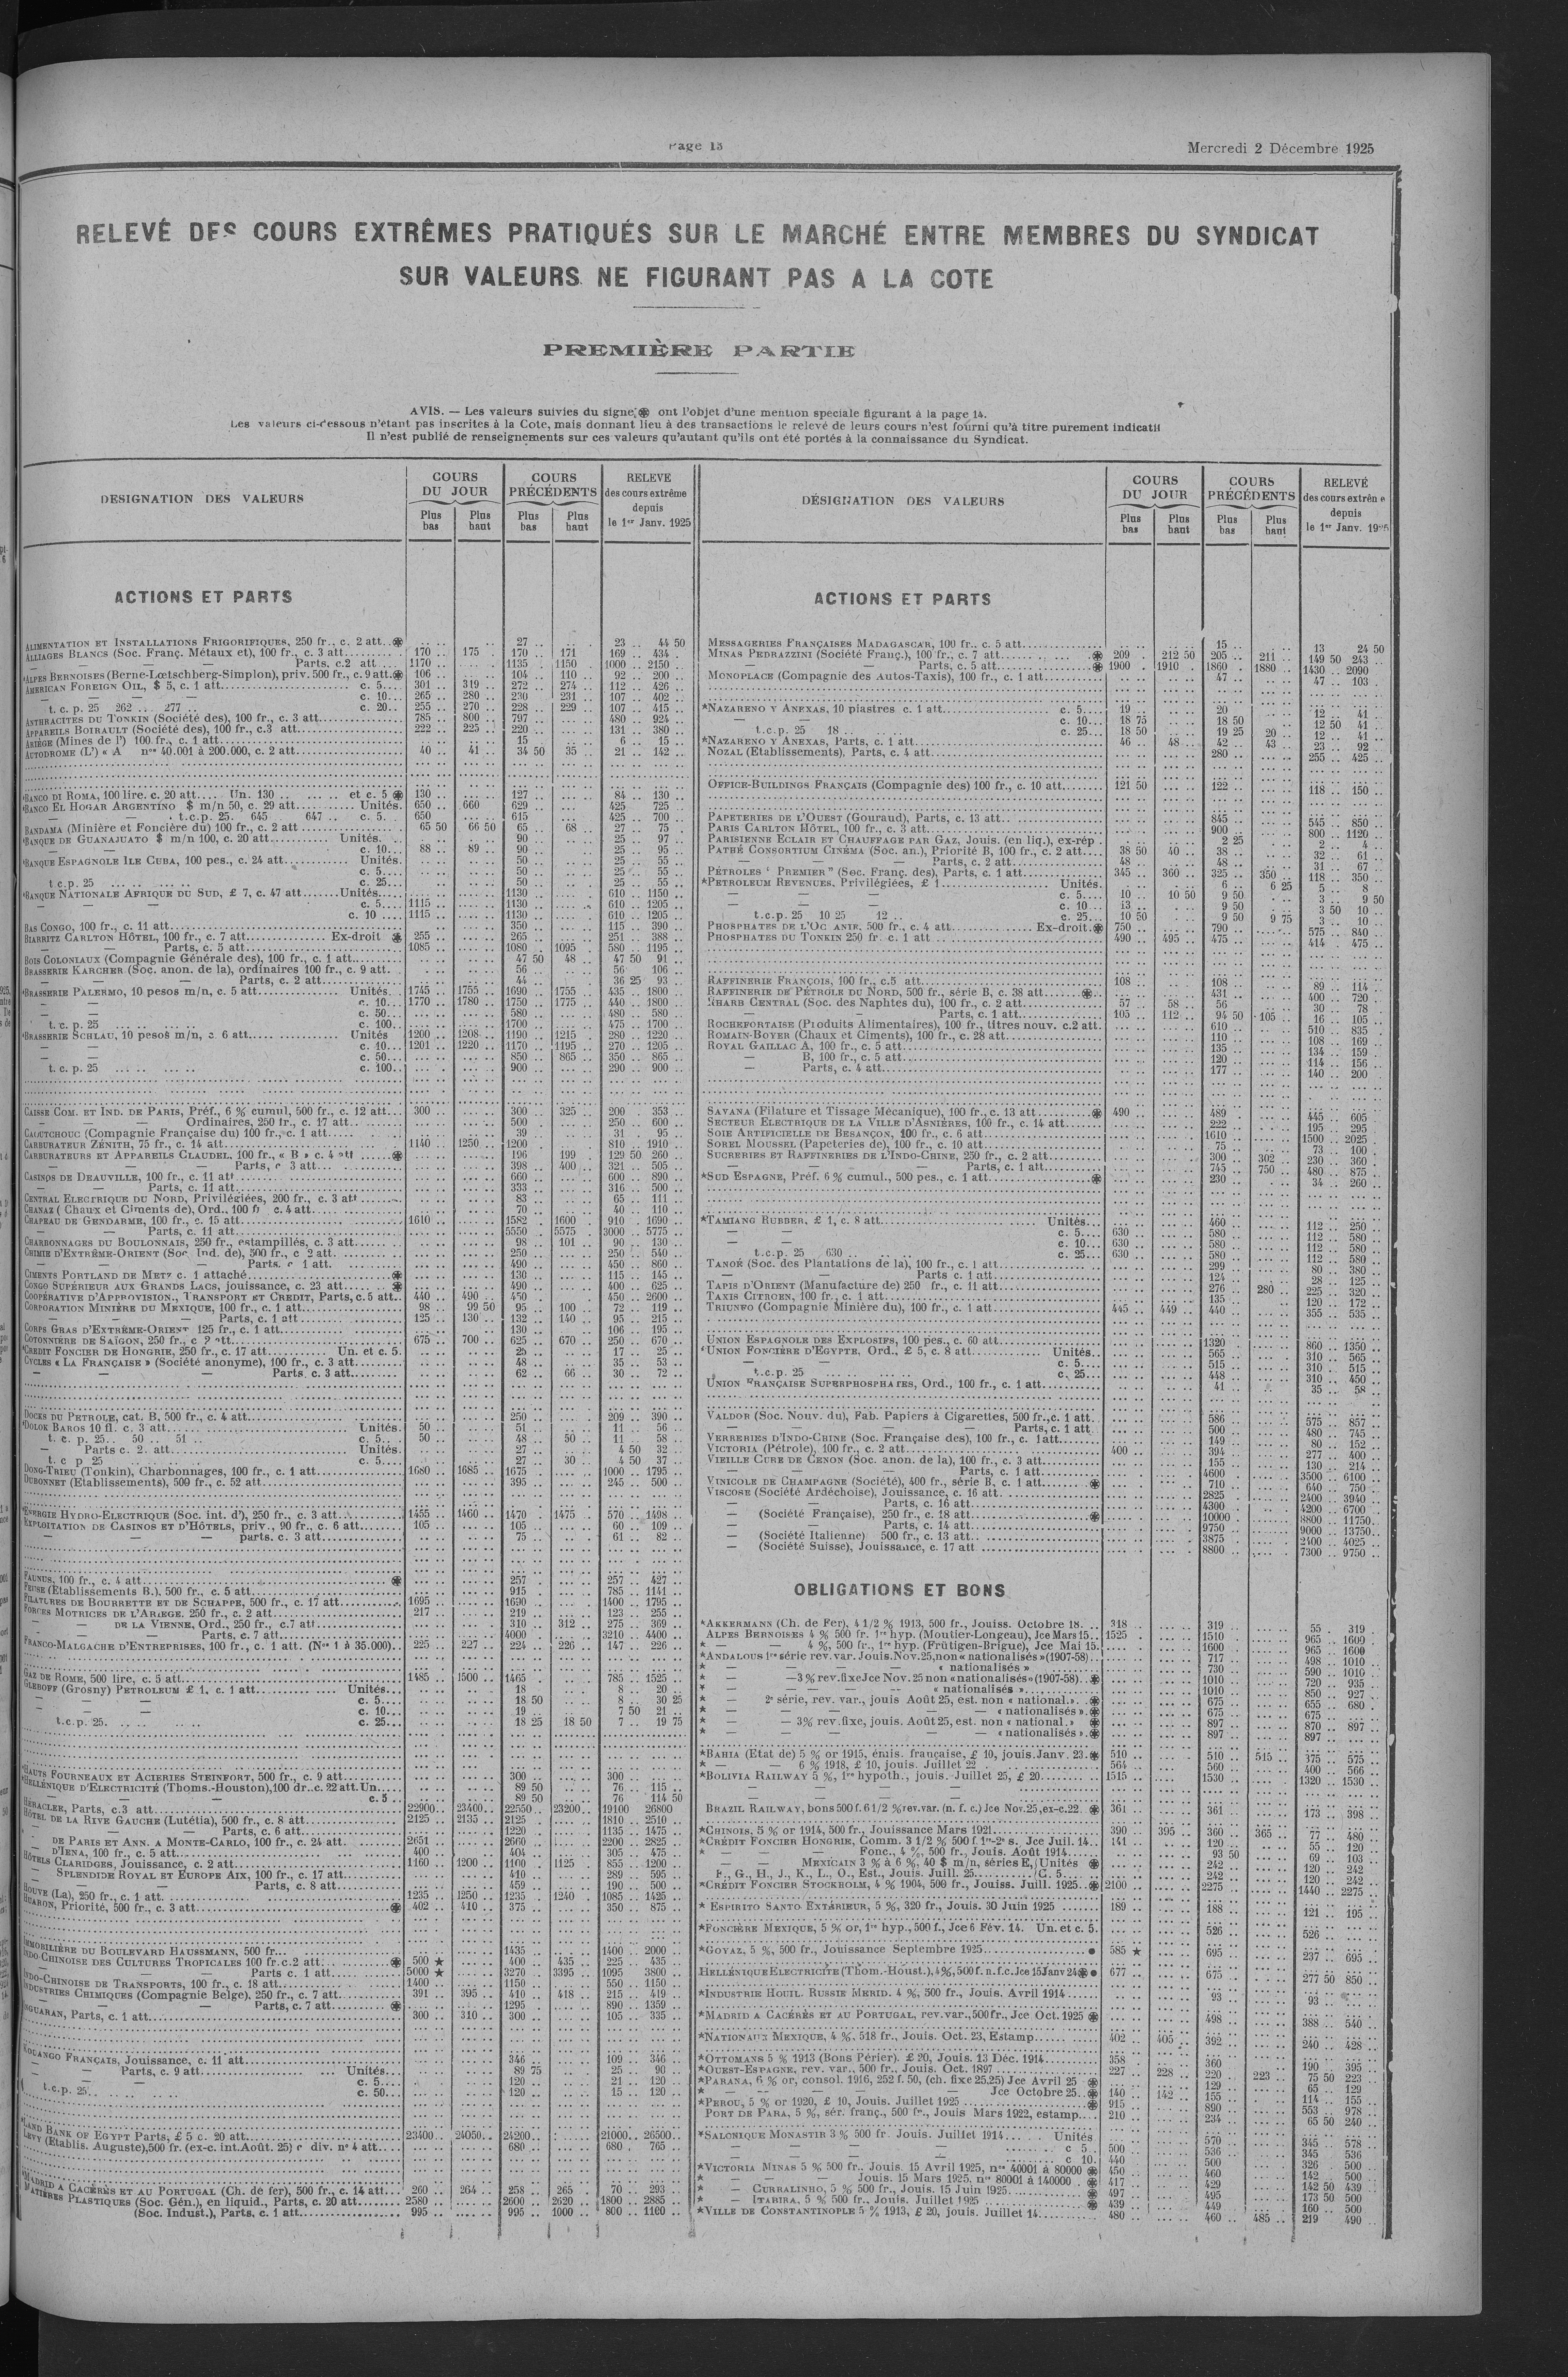 Page 13
Mercredi 2 Décembre 1925
RELEVÉ DES COURS EXTRÊMES PRATIQUÉS SUR LE MARCHÉ ENTRE MEMBRES DU SYNDICAT
SUR VALEURS NE FIGURANT PAS A LA COTE
PREMIÈRE PARTIE
AVIS. — Les valeurs suivies du signe ❋ ont l'objet d'une mention spéciale figurant à la page 14.
Les valeurs ci-dessous n'étant pas inscrites à la Cote, mais donnant lieu à des transactions le relevé de leurs cours n'est fourni qu'à titre purement indicatif
Il n'est publié de renseignements sur ces valeurs qu'autant qu'ils ont été portés à la connaissance du Syndicat.
DESIGNATION DES VALEURS
COURS DU JOUR
Plus bas
Plus haut
COURS PRÉCÉDENTS
Plus bas
Plus haut
RELEVE des cours extrême depuis le 1er Janv. 1925
ACTIONS ET PARTS
ALIMENTATION ET INSTALLATIONS FRIGORIFIQUES, 250 fr., c. 2 att. ❋ 27 23 44 50
ALLIAGES BLANCS (Soc. Franç. Métaux et), 100 fr., c. 3 att. 170 175 170 171 169 434
— — — Parts, c.2 att 1170 1135 1150 1000 2150
*ALPES BERNOISES (Berne-Lœtschberg-Simplon), priv. 500 fr., c. 9 att. ❋ 106 104 110 92 200
AMERICAN FOREIGN OIL, $ 5, c. 1 att. c. 5 301 319 272 274 112 426
— — — c. 10 265 280 230 231 107 402
t. c. p. 25 262 277 c. 20 255 270 228 229 107 415
ANTHRACITES DU TONKIN (Société des), 100 fr., c. 3 att. 785 800 797 480 924
APPAREILS BOIRAULT (Société des), 100 fr., c.3 att. 222 225 220 131 380
ARIÈGE (Mines de l') 100 fr., c. 1 att. 15 6 15
AUTODROME (L') « A nos 40.001 à 200.000, c. 2 att. 40 41 34 50 35 21 142
*BANCO DI ROMA, 100 lire. c. 20 att. Un. 130 et c. 5 ❋ 130 127 84 130
*BANCO EL HOGAR ARGENTINO $ m/n 50, c. 29 att. Unités. 650 660 629 425 725
— — t.c.p. 25. 645 647 c. 5 650 615 425 700
BANDAMA (Minière et Foncière du) 100 fr., c. 2 att 65 50 66 50 65 68 27 75
*BANQUE DE GUANAJUATO $ m/n 100, c. 20 att. Unités. 90 25 97
c. 10 88 89 90 25 95
*BANQUE ESPAGNOLE ILE CUBA, 100 pes., c. 24 att. Unités. 50 25 55
c. 5 50 25 55
t c.p. 25 c. 25 50 25 55
*BANQUE NATIONALE AFRIQUE DU SUD, £ 7, c. 47 att. Unités. 1130 610 1150
— — — c. 5 1115 1130 610 1205
c. 10 1115 1130 610 1205
BAS CONGO, 100 fr., c. 11 att. 350 115 390
BIARRITZ CARLTON HÔTEL, 100 fr., c. 7 att. Ex-droit ❋ 255 265 251 388
— — Parts, c. 5 att. 1085 1080 1095 580 1195
BOIS COLONIAUX (Compagnie Générale des), 100 fr., c. 1 att. 47 50 48 47 50 91
BRASSERIE KARCHER (Soc. anon. de la), ordinaires 100 fr., c. 9 att. 56 56 106
— — Parts, c. 2 att. 44 36 25 93
*BRASSERIE PALERMO, 10 pesos m/n, c. 5 att. Unités. 1745 1755 1690 1755 435 1800
— — c. 10 1770 1780 1750 1775 440 1800
c. 50 580 480 580
t. c. p. 25 c. 100 1700 475 1700
*BRASSERIE SCHLAU, 10 pesos m/n, c. 6 att. Unités 1200 1208 1190 1215 280 1220
— — c. 10 1201 1220 1170 1195 270 1205
— — c. 50 850 865 350 865
t. c. p. 25 c. 100 900 290 900
CAISSE COM. ET IND. DE PARIS, Préf., 6 % cumul, 500 fr., c. 12 att. 300 300 325 200 353
— Ordinaires, 250 fr., c. 17 att. 500 250 600
CAOUTCHOUC (Compagnie Française du) 100 fr., c. 1 att. 39 31 95
CARBURATEUR ZÉNITH, 75 fr., c. 14 att. 1140 1250 1200 810 1910
CARBURATEURS ET APPAREILS CLAUDEL, 100 fr., « B » c. 4 att ❋ 196 199 129 50 260
— — — Parts, c 3 att. 398 400 321 505
CASINOS DE DEAUVILLE, 100 fr., c. 11 att 600 600 890
— — Parts, c. 11 att. 333 316 500
CENTRAL ELECTRIQUE DU NORD, Privilégiées, 200 fr., c. 3 att 83 65 111
CHANAZ (Chaux et Ciments de), Ord., 100 fr c. 4 att. 70 40 110
CHAPEAU DE GENDARME, 100 fr., c. 15 att. 1610 1582 1600 910 1690
— Parts, c. 11 att. 5550 5575 3000 5775
CHARBONNAGES DU BOULONNAIS, 250 fr., estampillés, c. 3 att. 98 101 90 130
CHIMIE D'EXTRÊME-ORIENT (Soc Ind. de), 500 fr., c 2 att. 250 250 540
— — — Parts. c 1 att. 490 450 860
CIMENTS PORTLAND DE METZ c. 1 attaché ❋ 130 115 145
CONGO SUPÉRIEUR AUX GRANDS LACS, jouissance, c. 23 att. ❋ 490 400 625
COOPÉRATIVE D'APPROVISION., TRANSPORT ET CREDIT, Parts, c. 5 att. 440 490 450 450 2600
CORPORATION MINIÈRE DU MEXIQUE, 100 fr., c. 1 att. 98 99 50 95 100 72 119
— — Parts, c. 1 att. 125 130 132 140 95 215
CORPS GRAS D'EXTRÊME-ORIENT 125 fr., c. 1 att. 130 106 195
COTONNIÈRE DE SAÏGON, 250 fr., c 2 att. 675 700 625 670 250 670
*CREDIT FONCIER DE HONGRIE, 250 fr., c. 17 att. Un. et c. 5. 17 25
CYCLES « LA FRANÇAISE » (Société anonyme), 100 fr., c. 3 att. 48 35 53
— — Parts. c. 3 att. 62 66 30 72
DOCKS DU PETROLE, cat. B, 500 fr., c. 4 att. 250 209 390
*DOLOK BAROS 10 fl. c. 3 att. Unités. 50 51 11 56
t. c. p. 25 50 51 c. 5 50 48 50 11 58
— Parts c. 2. att. Unités. 27 4 50 32
t. c p 25 c. 5 27 30 4 50 37
DONG-TRIEU (Tonkin), Charbonnages, 100 fr., c. 1 att. 1680 1685 1675 1000 1795
DUBONNET (Etablissements), 500 fr., c. 52 att. 395 245 500
*ENERGIE HYDRO-ELECTRIQUE (Soc. int. d'), 250 fr., c. 3 att. 1455 1460 1470 1475 570 1498
EXPLOITATION DE CASINOS ET D'HÔTELS, priv., 90 fr., c. 6 att. 105 105 60 109
— — — parts. c. 3 att. 75 61 82
FAUNUS, 100 fr., c. 4 att. ❋ 257 257 427
(Etablissements B.), 500 fr., c. 5 att. 915 785 1141
FILATURES DE BOURRETTE ET DE SCHAPPE, 500 fr., c. 17 att. 1695 1690 1400 1795
FORCES MOTRICES DE L'ARIEGE. 250 fr., c. 2 att. 217 219 123 255
— — DE LA VIENNE, Ord., 250 fr., c.7 att 310 312 275 369
— — Parts, c. 7 att. 4000 3210 4400
FRANCO-MALGACHE D'ENTREPRISES, 100 fr., c. 1 att. (Nos 1 à 35.000) 225 227 224 226 147 226
GAZ DE ROME, 500 lire, c. 5 att. 1485 1500 1465 785 1525
GLEBOFF (Grosny) PETROLEUM £ 1, c. 1 att. Unités 18 8 20
— — — c. 5 18 50 8 30 25
— — — c. 10 19 7 50 21
t.c.p. 25. c. 25 18 25 18 50 7 19 75
*HAUTS FOURNEAUX ET ACIERIES STEINFORT, 500 fr., c. 9 att. 300 300
*HELLÉNIQUE D'ELECTRICITÉ (Thoms.-Houston), 100 dr..c. 22 att. Un. 89 50 76 115
— — c. 5 89 50 76 114 50
HÉRACLEE, Parts, c.3 att 22900 23400 22550 23200 19100 26800
HÔTEL DE LA RIVE GAUCHE (Lutétia), 500 fr., c. 8 att. 2125 2135 2125 1810 2510
— — Parts, c. 6 att. 1220 1135 1475
— DE PARIS ET ANN. A MONTE-CARLO, 100 fr., c. 24 att. 2651 2660 2200 2825
— D'IENA, 100 fr., c. 5 att. 400 404 305 475
HÔTELS CLARIDGES, Jouissance, c. 2 att. 1160 1200 1100 1125 855 1200
— SPLENDIDE ROYAL ET EUROPE AIX, 100 fr., c. 17 att. 410 289 595
— — Parts, c. 8 att. 459 190 500
HOUVE (La), 250 fr., c. 1 att. 1235 1250 1235 1240 1085 1425
HUARON, Priorité, 500 fr., c. 3 att. ❋ 402 410 375 350 875
IMMOBILIÈRE DU BOULEVARD HAUSSMANN, 500 fr. 1435 1400 2000
INDO-CHINOISE DES CULTURES TROPICALES 100 fr. c.2 att. ❋ 500 ★ 400 435 225 435
— — Parts c. 1 att. 5000 ★ 3270 3395 1095 3800
INDO-CHINOISE DE TRANSPORTS, 100 fr., c. 18 att. 1400 1150 550 1150
INDUSTRIES CHIMIQUES (Compagnie Belge), 250 fr., c. 7 att. 391 395 410 418 215 419
— — Parts, c. 7 att. ❋ 1295 890 1359
Parts, c. 1 att. 300 310 300 105 335
FRANÇAIS, Jouissance, c. 11 att. 346 109 346
— — Parts, c. 9 att. Unités 89 75 25 90
c. 5 120 21 120
t.c.p. 25 c. 50 120 15 120
*LAND BANK OF EGYPT Parts, £ 5 c. 20 att. 23400 24050 24200 21000 26500
LEVY (Etablis. Auguste), 500 fr. (ex-c. int. Août. 25) c div. n° 4 att. 680 680 765
*MADRID A CACÉRÈS ET AU PORTUGAL (Ch. de fer), 500 fr., c. 14 att. 260 264 258 265 70 293
MATIÈRES PLASTIQUES (Soc. Gén.), en liquid., Parts, c. 20 att. 2580 2600 2620 1800 2885
(Soc. Indust.), Parts, c. 1 att. 995 995 1000 800 1160
DÉSIGNATION DES VALEURS
COURS DU JOUR
Plus bas
Plus haut
COURS PRÉCÉDENTS
Plus bas
Plus haut
RELEVÉ des cours extrême depuis le 1er Janv. 1925
ACTIONS ET PARTS
MESSAGERIES FRANÇAISES MADAGASCAR, 100 fr., c. 5 att. 15 13 24 50
MINAS PEDRAZZINI (Société Franç.), 100 fr., c. 7 att. ❋ 209 212 50 205 211 149 50 243
— — Parts, c. 5 att. ❋ 1900 1910 1860 1880 1430 2090
MONOPLACE (Compagnie des Autos-Taxis), 100 fr., c. 1 att. 47 47 103
*NAZARENO Y ANEXAS, 10 piastres c. 1 att. c. 5 19 20 12 41
— — c. 10 18 75 18 50 12 50 41
t.c.p. 25 18 c. 25 18 50 19 25 20 12 41
*NAZARENO Y ANEXAS, Parts, c. 1 att. 46 48 42 43 23 92
NOZAL (Etablissements), Parts, c. 4 att. 280 255 425
OFFICE-BUILDINGS FRANÇAIS (Compagnie des) 100 fr., c. 10 att. 121 50 122 118 150
PAPETERIES DE L'OUEST (Gouraud), Parts, c. 13 att. 845 545 850
PARIS CARLTON HÔTEL, 100 fr., c. 3 att. 900 800 1120
PARISIENNE ECLAIR ET CHAUFFAGE PAR GAZ, Jouis. (en liq.), ex-rép 2 25 2 4
PATHÉ CONSORTIUM CINÉMA (Soc. an.), Priorité B, 100 fr., c. 2 att. 38 50 40 38 32 61
— — — Parts, c. 2 att. 48 48 31 67
PÉTROLES "PREMIER" (Soc. Franç. des), Parts, c. 1 att. 345 360 325 350 118 350
*PETROLEUM REVENUES, Privilégiées, £ 1 Unités. 6 6 25 5 8
— — c. 5 10 10 50 9 50 3 9 50
— — c. 10 13 9 50 3 50 10
t.c.p. 25 10 25 12 c. 25 10 50 9 50 9 75 3 10
PHOSPHATES DE L'OCÉANIE, 100 fr., c. 4 att. Ex-droit. ❋ 750 790 575 840
PHOSPHATES DU TONKIN 250 fr. c. 1 att 490 495 475 414 475
RAFFINERIE FRANÇOIS, 100 fr., c.5 att. 108 108 89 114
RAFFINERIE DE PÉTROLE DU NORD, 500 fr., série B, c. 38 att. ❋ 431 400 720
CENTRAL (Soc. des Naphtes du), 100 fr., c. 2 att. 57 58 56 30 78
— — Parts, c. 1 att. 105 112 94 50 105 16 105
ROCHEFORTAISE (Produits Alimentaires), 100 fr., titres nouv. c.2 att. 610 510 835
ROMAIN-BOYER (Chaux et Ciments), 100 fr., c. 28 att. 110 108 169
ROYAL GAILLAC A, 100 fr., c. 5 att. 135 134 159
— B, 100 fr., c. 5 att. 120 114 156
— Parts, c. 4 att. 177 140 200
SAVANA (Filature et Tissage Mécanique), 100 fr., c. 13 att. ❋ 490 489 445 605
SECTEUR ELECTRIQUE DE LA VILLE D'ASNIÈRES, 100 fr., c. 14 att. 222 195 295
SOIE ARTIFICIELLE DE BESANÇON, 100 fr., c. 6 att. 1610 1500 2025
SOREL MOUSSEL (Papeteries de), 100 fr., c. 10 att. 75 73 100
SUCRERIES ET RAFFINERIES DE L'INDO-CHINE, 250 fr., c. 2 att. 300 302 230 360
— — Parts, c. 1 att. 745 750 480 875
*SUD ESPAGNE, Préf. 6 % cumul., 500 pes., c. 1 att. ❋ 230 34 260
*TAMIANG RUBBER, £ 1, c. 8 att. Unités. 460 112 250
— — c. 5 630 580 112 580
— — c. 10 630 580 112 580
t.c.p. 25 630 c. 25 630 580 112 580
TANOÉ (Soc. des Plantations de la), 100 fr., c. 1 att 299 80 380
— — Parts c. 1 att. 124 28 125
TAPIS D'ORIENT (Manufacture de) 250 fr., c. 11 att. 276 280 225 320
TAXIS CITROEN, 100 fr., c. 1 att. 135 120 172
TRIUNFO (Compagnie Minière du), 100 fr., c. 1 att. 445 449 440 355 535
UNION ESPAGNOLE DES EXPLOSIFS, 100 pes., c. 60 att. 1320 860 1350
*UNION FONCIÈRE D'EGYPTE, Ord., £ 5, c. 8 att. Unités. 565 310 565
— c. 5 515 310 515
t.c.p. 25 c. 25 448 310 450
UNION FRANÇAISE SUPERPHOSPHATES, Ord., 100 fr., c. 1 att. 41 35 58
VALDOR (Soc. Nouv. du), Fab. Papiers à Cigarettes, 500 fr., c. 1 att. 586 575 857
— — — Parts, c. 1 att. 500 480 745
VERRERIES D'INDO-CHINE (Soc. Française des), 100 fr., c. 1att. 149 80 152
VICTORIA (Pétrole), 100 fr., c. 2 att. 400 394 277 400
VIEILLE CURE DE CENON (Soc. anon. de la), 100 fr., c. 3 att. 155 130 214
— — Parts, c. 1 att. 4600 3500 6100
VINICOLE DE CHAMPAGNE (Société), 400 fr., série B, c. 1 att. ❋ 710 640 750
VISCOSE (Société Ardéchoise), Jouissance, c. 16 att. 2825 2400 3940
— Parts, c. 16 att. 4300 4200 6700
— (Société Française), 250 fr., c. 18 att. ❋ 10000 8800 11750
— — Parts, c. 14 att. 9750 9000 13750
— (Société Italienne) 500 fr., c. 13 att. 3875 2400 4025
— (Société Suisse), Jouissance, c. 17 att 8800 7300 9750
OBLIGATIONS ET BONS
*AKKERMANN (Ch. de Fer), 4 1/2 % 1913, 500 fr., Jouiss. Octobre 18. 318 319 55 319
ALPES BERNOISES 4 % 500 fr. 1re hyp. (Moutier-Longeau), Jce Mars 15 1525 1510 965 1609
* — — 4 %, 500 fr., 1re hyp. (Frütigen-Brigue), Jce Mai 15. 1600 965 1600
*ANDALOUS 1re série rev. var. Jouis. Nov. 25, non « nationalisés » (1907-58) 717 498 1010
* — — — « nationalisés » 730 590 1010
* — — 3 % rev. fixe Jce Nov. 25 non « nationalisés » (1907-58) ❋ 1010 720 935
* — — — — « nationalisés » 1010 850 927
* — 2e série, rev. var., jouis Août 25, est. non « national.» ❋ 675 655 680
* — — — — « nationalisés ». ❋ 675 675
* — — 3% rev. fixe, jouis. Août 25, est. non « national.» ❋ 897 870 897
* — — — — « nationalisés ». ❋ 897 897
*BAHIA (Etat de) 5 % or 1915, émis. française, £ 10, jouis. Janv. 23. ❋ 510 510 515 375 575
* — — 6 % 1918, £ 10, jouis. Juillet 22 564 560 400 566
*BOLIVIA RAILWAY 5 %, 1re hypoth., jouis. Juillet 25, £ 20 1515 1530 1320 1530
BRAZIL RAILWAY, bons 500 f. 6 1/2 % rev. var. (n. f. c.) Jce Nov. 25, ex-c. 22. ❋ 361 361 173 398
*CHINOIS, 5 % or 1914, 500 fr., Jouissance Mars 1921 390 395 360 365 77 480
*CRÉDIT FONCIER HONGRIE, Comm. 3 1/2 % 500 f. 1re-2e s. Jce Juil. 14 141 120 55 120
— — Fonc., 4 %, 500 fr., Jouis. Août 1914 93 50 69 103
— — MEXICAIN 3 % à 6 %, 40 $ m/n, séries E, Unités ❋ 242 120 242
F., G., H., J., K., L., O., Est., Jouis. Juill. 25 C. 5 242 120 242
*CRÉDIT FONCIER STOCKHOLM, 4 % 1904, 500 fr., Jouiss. Juill. 1925 ❋ 2100 2275 1440 2275
* ESPIRITO SANTO EXTÉRIEUR, 5 %, 320 fr., Jouis. 30 Juin 1925 189 188 121 195
*FONCIÈRE MEXIQUE, 5 % or, 1re hyp., 500 f., Jce 6 Fév. 14. Un. et c. 5. 526 526
*GOYAZ, 5 %, 500 fr., Jouissance Septembre 1925 ● 585 ★ 695 237 695
HELLÉNIQUE ELECTRICITÉ (Thom.-Houst.), 4%, 500 f. n. f. c. Jce 15 Janv 24 ❋ ● 677 675 277 50 850
*INDUSTRIE HOUIL. RUSSIE MERID. 4 %, 500 fr., Jouis. Avril 1914 93 93
*MADRID A CACÉRÈS ET AU PORTUGAL, rev. var., 500 fr., Jce Oct. 1925 ❋ 498 388 540
*NATIONAUX MEXIQUE, 4 %, 518 fr., Jouis. Oct. 23, Estamp. 402 405 392 240 428
*OTTOMANS 5 % 1913 (Bons Périer). £ 20, Jouis. 13 Déc. 1914 358 360 190 395
*OUEST-ESPAGNE, rev. var., 500 fr., Jouis. Oct. 1897 227 228 220 223 75 50 223
*PARANA, 6 % or, consol. 1916, 252 f. 50, (ch. fixe 25,25) Jce Avril 25 ❋ 129 65 129
* — — Jce Octobre 25 ❋ 140 142 155 114 155
*PEROU, 5 % or 1920, £ 10, Jouis. Juillet 1925 ❋ 915 890 553 978
PORT DE PARA, 5 %, sér. franç., 500 fr., Jouis Mars 1922, estamp. 210 234 65 50 240
*SALONIQUE MONASTIR 3 % 500 fr. Jouis. Juillet 1914 Unités 570 345 578
— — — c 5 500 536 345 536
c 10. 440 500 326 500
*VICTORIA MINAS 5 % 500 fr., Jouis. 15 Avril 1925, nos 40001 à 80000 ❋ 450 460 142 500
* — — — Jouis. 15 Mars 1925, nos 80001 à 140000 ❋ 417 429 142 50 439
* — — CURRALINHO, 5 % 500 fr., Jouis. 15 Juin 1925 ❋ 497 495 173 50 500
* — — ITABIRA, 5 % 500 fr., Jouis. Juillet 1925 ❋ 439 449 160 500
*VILLE DE CONSTANTINOPLE 5 % 1913, £ 20, jouis. Juillet 14 480 460 485 219 490